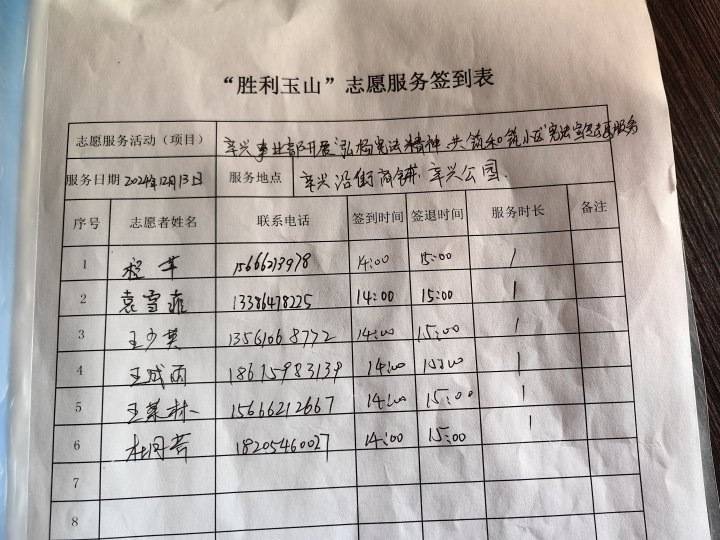 “胜利玉山”志愿服务签到表
志愿服务活动（项目） 辛兴事业部开展“弘扬宪法精神 共筑和 筑小区”宪法宣传志愿服务
服务日期 2024年12月13日 服务地点 辛兴沿街商铺、辛兴公园.
序号 志愿者姓名 联系电话 签到时间 签退时间 服务时长 备注
1 程 15666213978 14:00 15:00 1
2 袁雪菲 13386418225 14:00 15:00 1
3 王少英 13561068772 14:00 15:00 1
4 王成雨 18615983139 14:00 15:00 1
5 王荣林 15666212667 14:00 15:00 1
6 杜同芳 18205460027 14:00 15:00 1
7
8